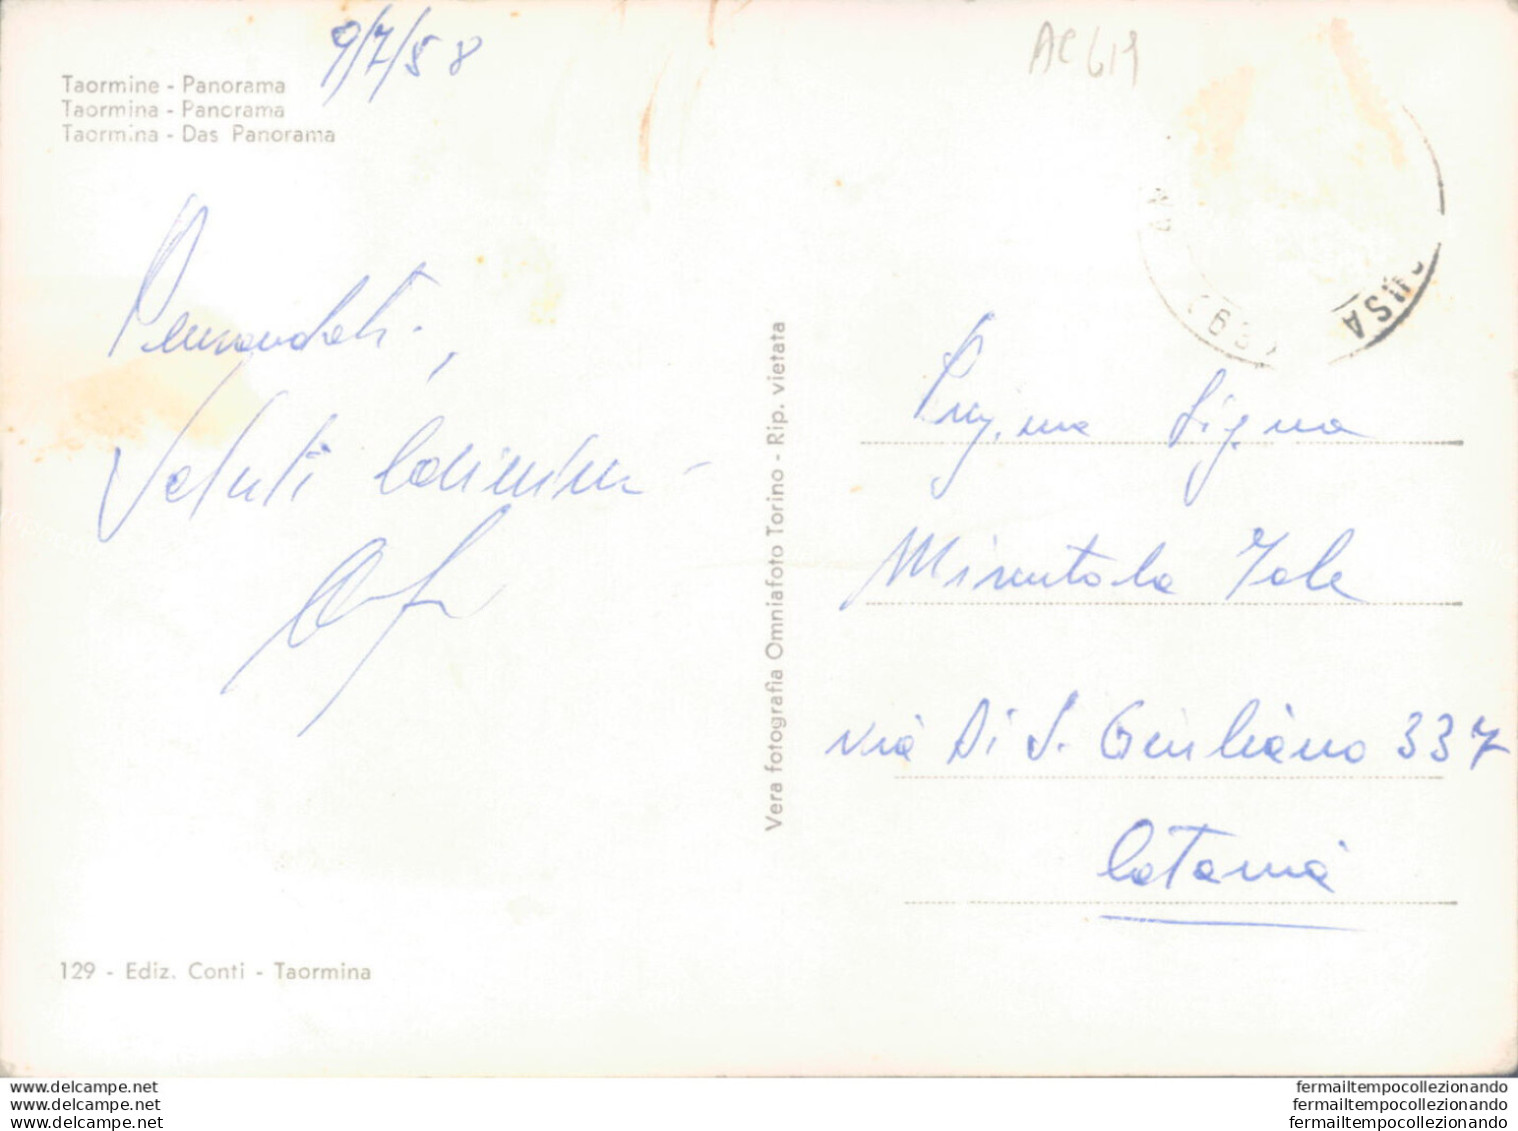 9/7/58
AC 619
Taormine - Panorama
Taormina - Panorama
Taormina - Das Panorama
Saluti
Vera fotografia Omniafoto Torino - Rip. vietata
USA
Sig.na
Minutola Iole
via Di S. Giuliano 337
Catania
129 - Ediz. Conti - Taormina
www.delcampe.net
www.delcampe.net
www.delcampe.net
fermailtempocollezionando
fermailtempocollezionando
fermailtempocollezionando